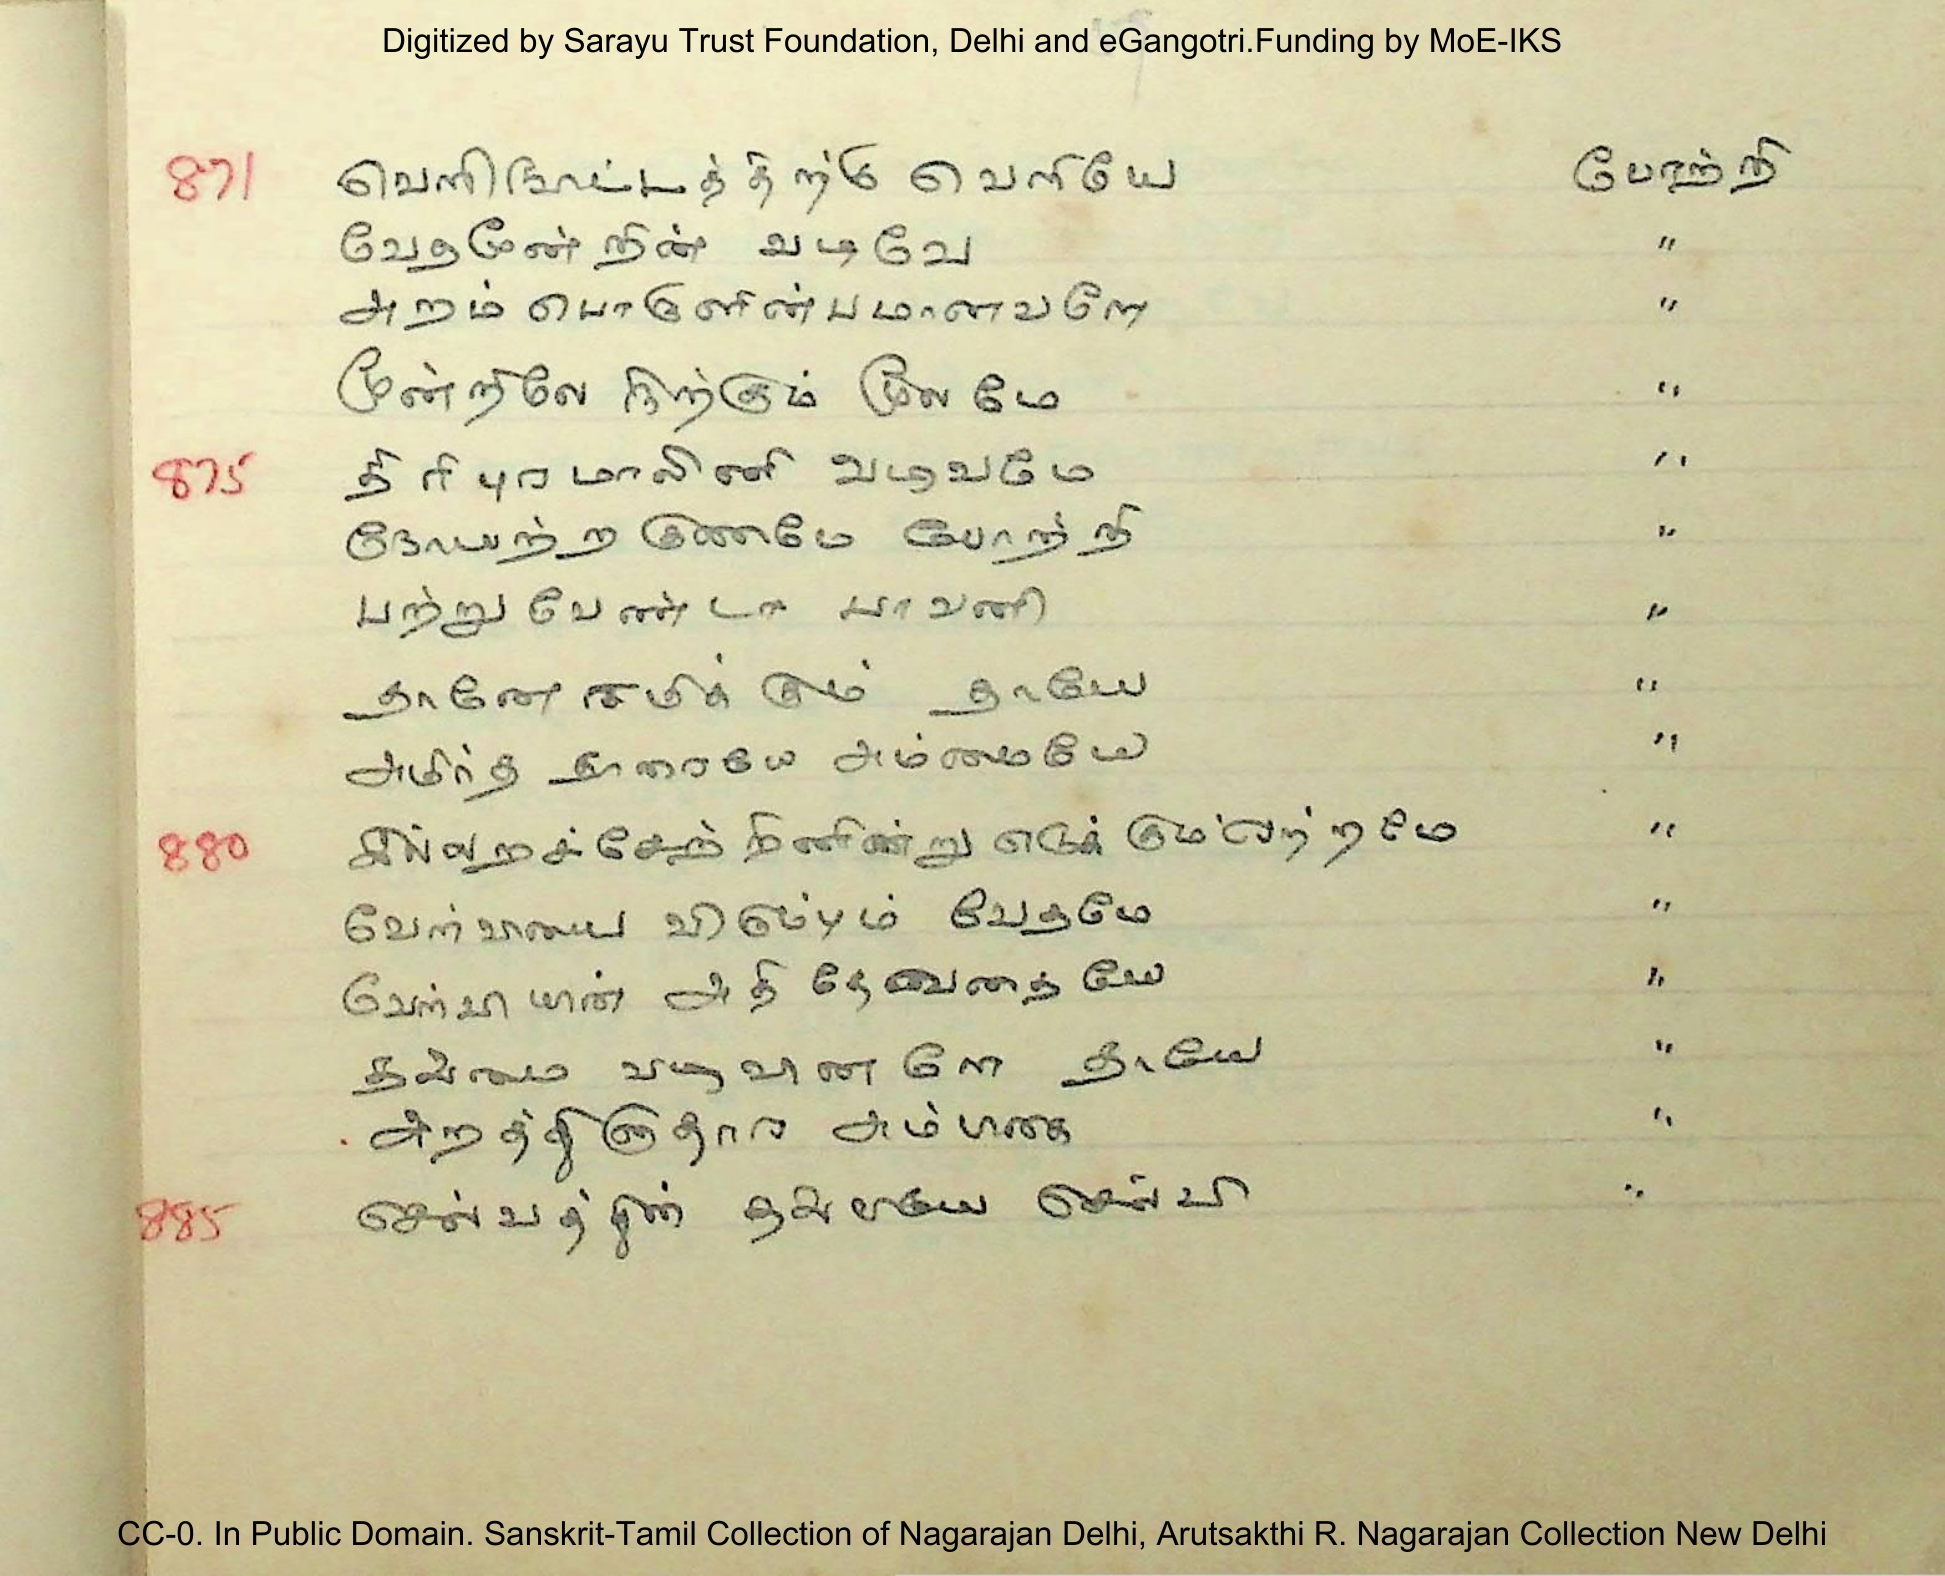 Digitized by Sarayu Trust Foundation, Delhi and eGangotri.Funding by MoE-IKS
871 வெளியே போற்றி
வேதமூன்றின் வடிவே "
அறம் பொருளின்பமானவளே "
மூன்றிலே நிற்கும் மூலமே "
875 திரிபுரமாலினி வடிவமே "
நோயற்ற குணமே போற்றி "
பற்றுவேண்டா பாவனி "
தானே சுமிக்கும் தாயே "
அமிர்த தாரையே அம்மையே "
880 "
வேள்வியை விரும்பும் வேதமே "
வேள்வியின் அதி தேவதையே "
தவ்மை வடிவானளே தாயே "
அம்பிகை "
885 செல்வத்தின் செல்வி "
CC-0. In Public Domain. Sanskrit-Tamil Collection of Nagarajan Delhi, Arutsakthi R. Nagarajan Collection New Delhi